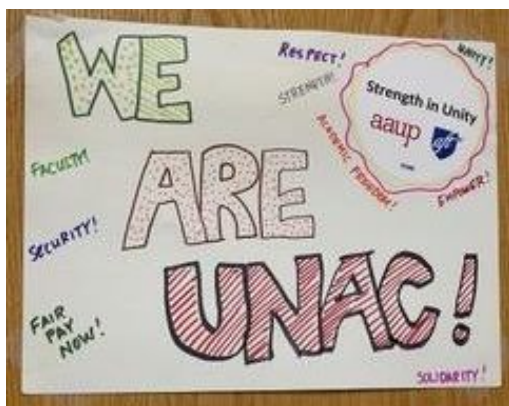 WE
ARE
UNAC!
RESPECT!
STRENGTH!
UNITY!
Strength in Unity
aaup
aft
ACADEMIC FREEDOM!
EMPOWER!
FACULTY!
SECURITY!
FAIR
PAY
NOW!
SOLIDARITY!